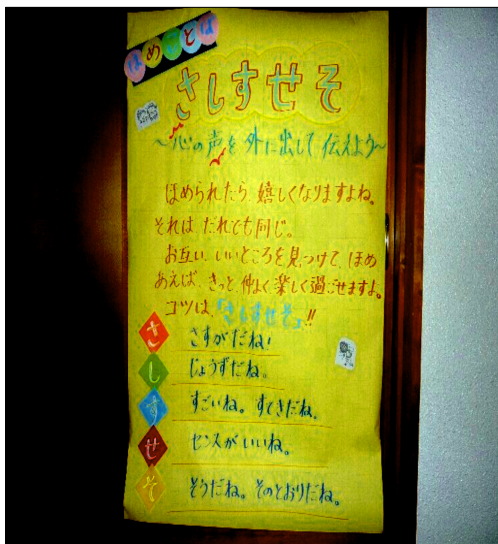 ほめことば
さしすせそ
～心の声を外に出して伝えよう～
ほめられたら、嬉しくなりますよね。
それは、だれでも同じ。
お互い、いいところを見つけて、ほめ
あえば、きっと仲よく楽しく過ごせますよ。
コツは、「さしすせそ」!!
さ さすがだね!
し じょうずだね。
す すごいね。すてきだね。
せ センスがいいね。
そ そうだね。そのとおりだね。